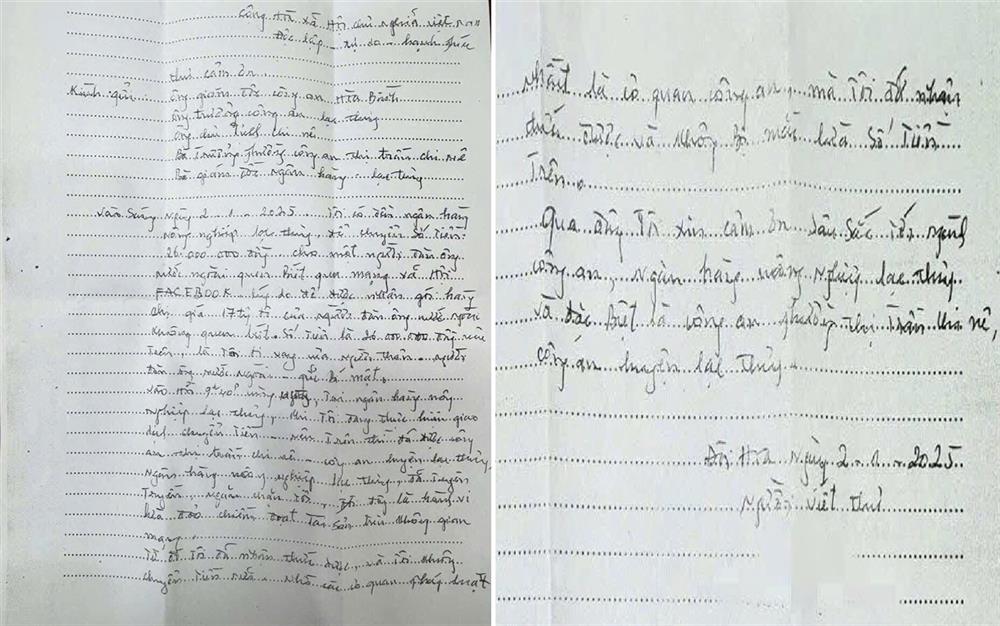 Cộng hòa xã hội chủ nghĩa việt nam
Độc lập - tự do - hạnh phúc
thư cảm ơn
Kính gửi ông giám đốc công an Hòa Bình
ông trưởng công an lạc thủy
ông chủ tịch chi nê
Bà trưởng phường công an thị trấn chi nê
Bà giám đốc ngân hàng lạc thủy
vào sáng ngày 2 - 1 - 2025 tôi có đến ngân hàng
nông nghiệp lạc thủy để chuyển số tiền
26.000.000 đồng cho một người đàn ông
nước ngoài quen biết qua mạng xã hội
FACEBOOK lý do để được nhận gói hàng
trị giá 17 tỷ của người đàn ông nước ngoài
không quen biết số tiền là 26.000.000 đồng nêu
trên, là tôi đi vay của người thân người
đàn ông nước ngoài bí mật.
vào hồi 9h40' cùng ngày, tại ngân hàng nông
nghiệp lạc thủy, khi tôi đang thực hiện giao
dịch chuyển tiền nêu trên thì đã được công
an thị trấn chi nê - công an huyện lạc thủy,
Ngân hàng nông nghiệp lạc thủy, đã tuyên
truyền, ngăn chặn tôi, đây là hành vi
lừa đảo chiếm đoạt tài sản trên không gian
mạng.
Từ đó tôi đã nhận thức được, và tôi không
chuyển tiền nữa. Nhờ các cơ quan pháp luật
nhất là cơ quan công an, mà tôi đã nhận
thức được và không bị mất lừa số tiền
trên.
Qua đây tôi xin cảm ơn sâu sắc tới ngành
công an, ngân hàng nông nghiệp lạc thủy
và đặc biệt là công an phường thị trấn chi nê,
công an huyện lạc thủy.
Ngày 2 - 1 - 2025
Người viết thư